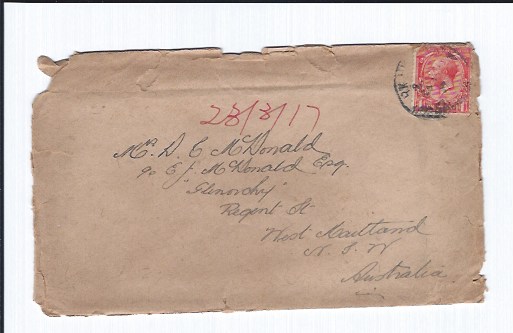 23/3/17
Mr. D. C McDonald
c/o E. J. McDonald Esq.
"Glenorchy"
Regent St.
West Maitland
N. S. W
Australia